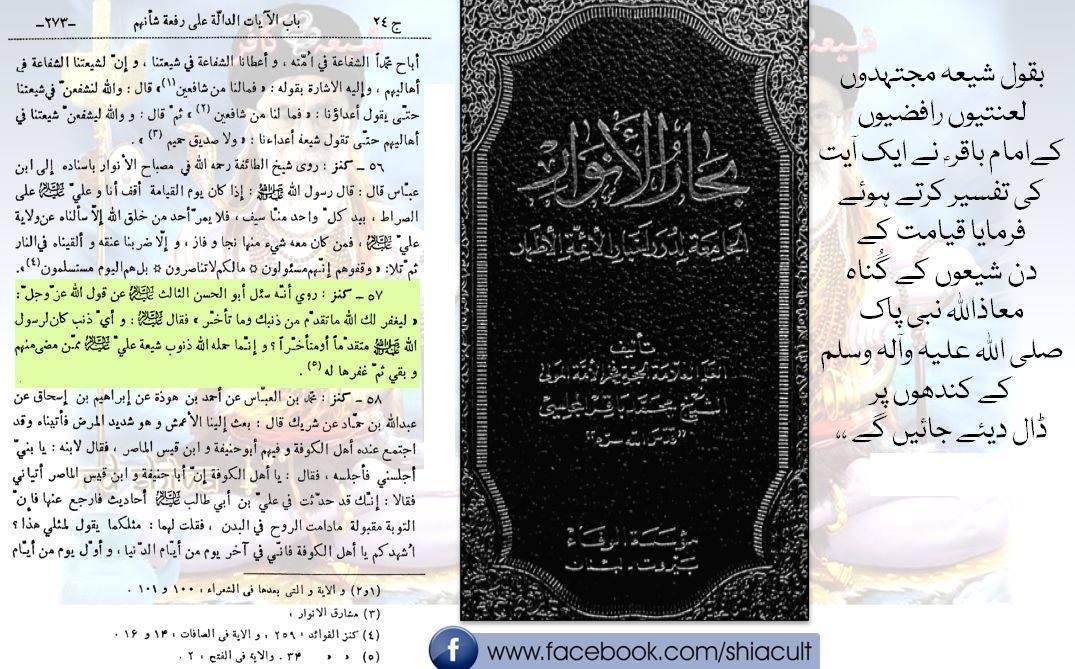 ج ٢٤ باب الآيات الدالّة على رفعة شأنهم -٢٧٣-
أباح محمّداً الشفاعة في اُمّته ، و أعطانا الشفاعة في شيعتنا ، و إنّ لشيعتنا الشفاعة في
أهاليهم ، و إليه الاشارة بقوله : « فمالنا من شافعين (١) » قال : والله لنشفعنّ في شيعتنا
حتّى يقول أعداؤنا : « فما لنا من شافعين (٢) » ثمّ قال : و والله ليشفعنّ شيعتنا في
أهاليهم حتّى تقول شيعة أعداءنا : « ولا صديق حميم (٣) .
٥٦ ـ كنز : روى شيخ الطائفة رحمه الله في مصباح الأنوار باسناده إلى ابن
عبّاس قال : قال رسول الله ﷺ : إذا كان يوم القيامة أقف أنا و عليّ عليه السلام على
الصراط ، بيد كلّ واحد منّا سيف ، فلا يمرّ أحد من خلق الله إلّا سألناه عن ولاية
عليّ عليه السلام ، فمن كان معه شيء منها نجا و فاز ، و إلّا ضربنا عنقه و ألقيناه في النار
ثمّ تلا : « وقفوهم إنّهم مسئولون ☆ مالكم لا تناصرون ☆ بل هم اليوم مستسلمون (٤) » .
٥٧ ـ كنز : روي أنّه سئل أبو الحسن الثالث عليه السلام عن قول الله عزّ وجلّ :
« ليغفر لك الله ما تقدّم من ذنبك وما تأخّر » فقال عليه السلام : و أيّ ذنب كان لرسول
الله ﷺ متقدّماً أو متأخّراً ؟ و إنّما حمله الله ذنوب شيعة عليّ عليه السلام ممّن مضى منهم
و بقي ثمّ غفرها له (٥) .
٥٨ ـ كنز : محمّد بن العبّاس عن أحمد بن هوذة عن إبراهيم بن إسحاق عن
عبدالله بن حمّاد عن شريك قال : بعث إلينا الأعمش و هو شديد المرض فأتيناه وقد
اجتمع عنده أهل الكوفة و فيهم أبو حنيفة و ابن قيس الماصر ، فقال لابنه : يا بنيّ
أجلسني فأجلسه ، فقال : يا أهل الكوفة إنّ أبا حنيفة و ابن قيس الماصر أتياني
فقالا : إنّك قد حدّثت في عليّ بن أبي طالب عليه السلام أحاديث فارجع عنها فانّ
التوبة مقبولة مادامت الروح في البدن ، فقلت لهما : مثلكما يقول لمثلي هذا ؟
اُشهدكم يا أهل الكوفة فانّي في آخر يوم من أيّام الدّنيا ، و أوّل يوم من أيّام
(١و٢) و الاية و التى بعدها فى الشعراء ، ١٠٠ و ١٠١ .
(٣) مشارق الانوار ،
(٤) كنز الفوائد ، ٢٥٩ ، و الاية فى الصافات ، ١٤ و ١٦ .
(٥) « « ٣٤ . والاية فى الفتح ، ٢ .
بحار الأنوار
الجامعة لدرر أخبار الأئمة الأطهار
تأليف
العلم العلامة الحجة فخر الأمة المولى
الشيخ محمد باقر المجلسي
"قدس الله سره"
مؤسسة الوفاء
بيروت - لبنان
بقول شیعہ مجتہدوں
لعنتیوں رافضیوں
کے امام باقر نے ایک آیت
کی تفسیر کرتے ہوئے
فرمایا قیامت کے
دن شیعوں کے گناہ
معاذاللہ نبی پاک
صلی اللہ علیہ وآلہ وسلم
کے کندھوں پر
ڈال دیئے جائیں گے ،،
www.facebook.com/shiacult